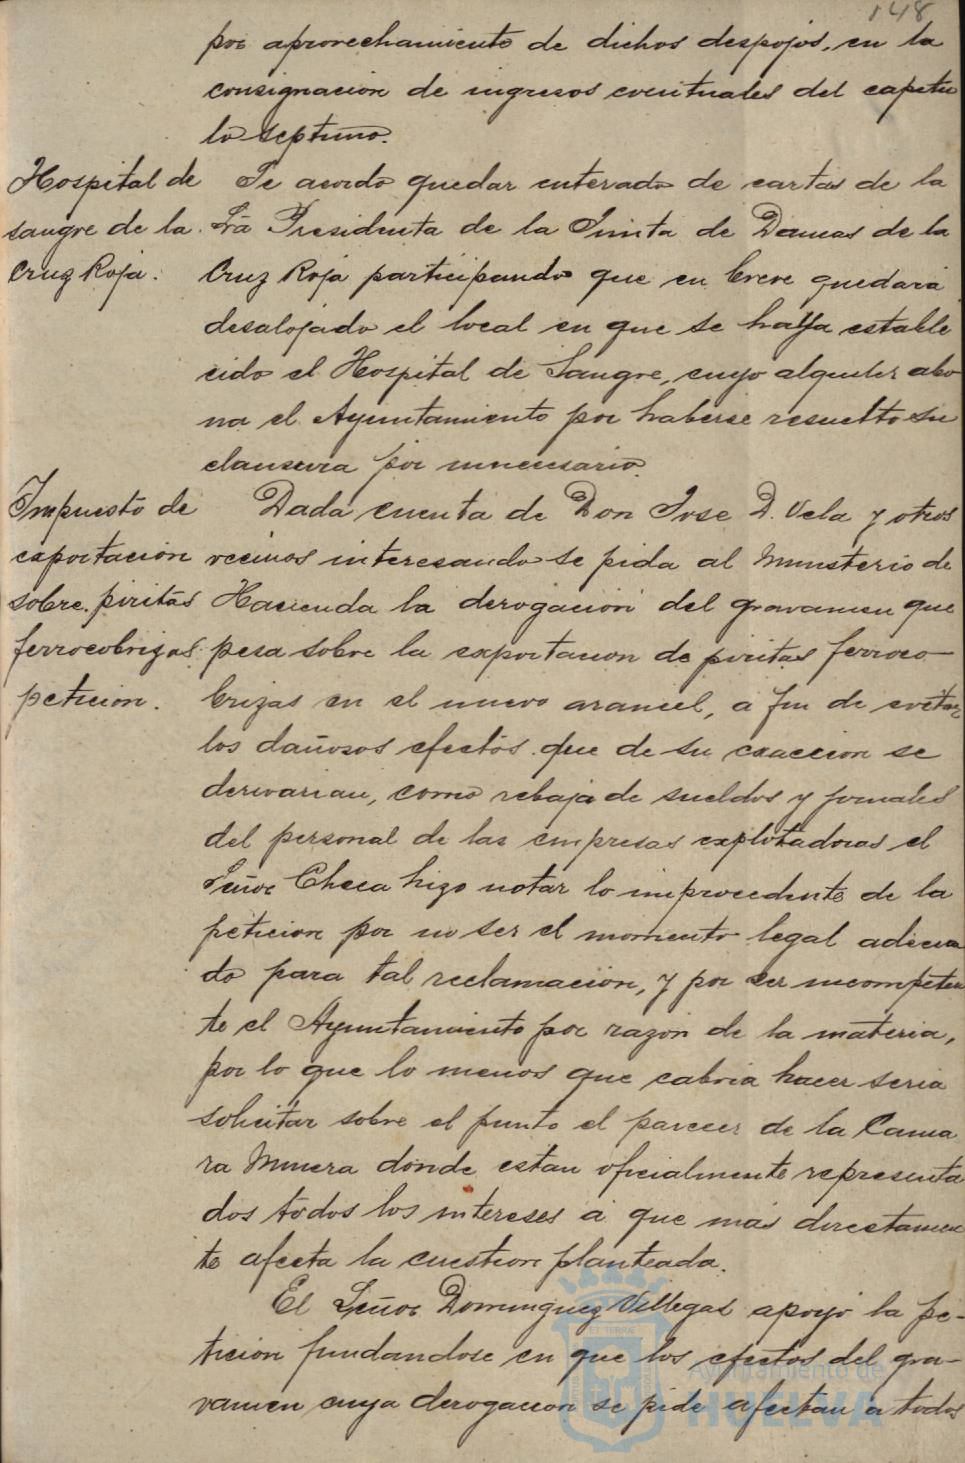 148
por aprovechamiento de dichos despojos, en la
consignacion de ingresos eventuales del capitu
lo septimo.
Hospital de
sangre de la
Cruz Roja.
Se acordo quedar enterado de cartas de la
Sra Presidenta de la Junta de Damas de la
Cruz Roja participando que en breve quedará
desalojado el local en que se halla estable
cido el Hospital de Sangre, cuyo alquiler abo
na el Ayuntamiento por haberse resuelto su
clausura por innecesario
Impuesto de
exportacion
sobre piritas
ferrocobrizas
peticion.
Dada cuenta de Don Jose D. Vela y otros
vecinos interesando se pida al Ministerio de
Hacienda la derogacion del gravamen que
pesa sobre la exportacion de piritas ferroco-
brizas en el nuevo arancel, a fin de evitar
los dañosos efectos que de su exaccion se
derivarian, como rebaja de sueldos y jornales
del personal de las empresas explotadoras el
Señor Checa hizo notar lo improcedente de la
peticion por no ser el momento legal adecua
do para tal reclamacion, y por ser incompeten
te el Ayuntamiento por razon de la materia,
por lo que lo menos que cabria hacer seria
solicitar sobre el punto el parecer de la Cama
ra Minera donde estan oficialmente representa
dos todos los intereses á que mas directamen
te afecta la cuestion planteada.
El Señor Dominguez Villegas apoyó la pe-
ticion fundandose en que los efectos del gra-
vamen cuya derogacion se pide afectan a todos
Ayuntamiento de
HUELVA